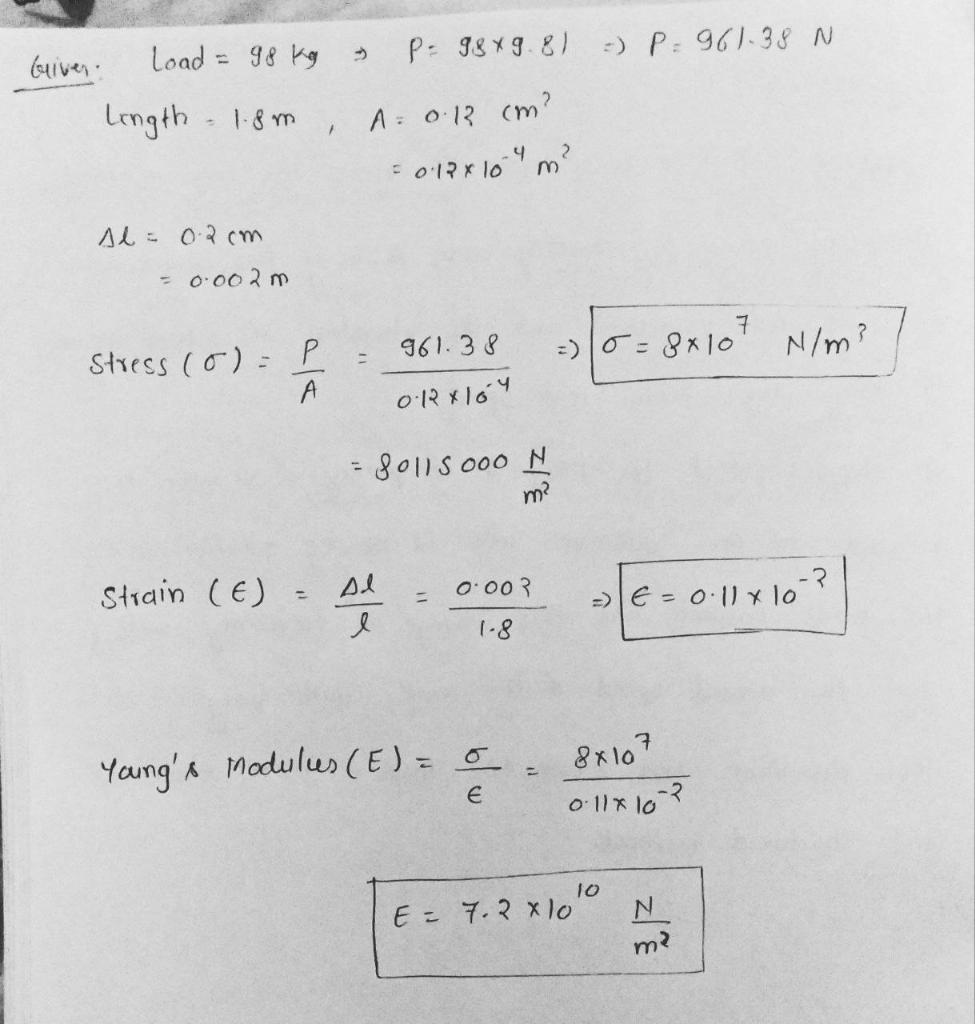 Given: Load = 98 kg ⇒ P = 98×9.81 ⇒ P = 961.38 N
Length = 1.8 m , A = 0.12 cm²
= 0.12 × 10⁻⁴ m²
Δl = 0.2 cm
= 0.002 m
Stress (σ) = P/A = 961.38 / 0.12 × 10⁻⁴ ⇒ σ = 8×10⁷ N/m²
= 80115000 N/m²
Strain (ε) = Δl/l = 0.002 / 1.8 ⇒ ε = 0.11 × 10⁻²
Young's Modulus (E) = σ/ε = 8×10⁷ / 0.11 × 10⁻²
E = 7.2 × 10¹⁰ N/m²